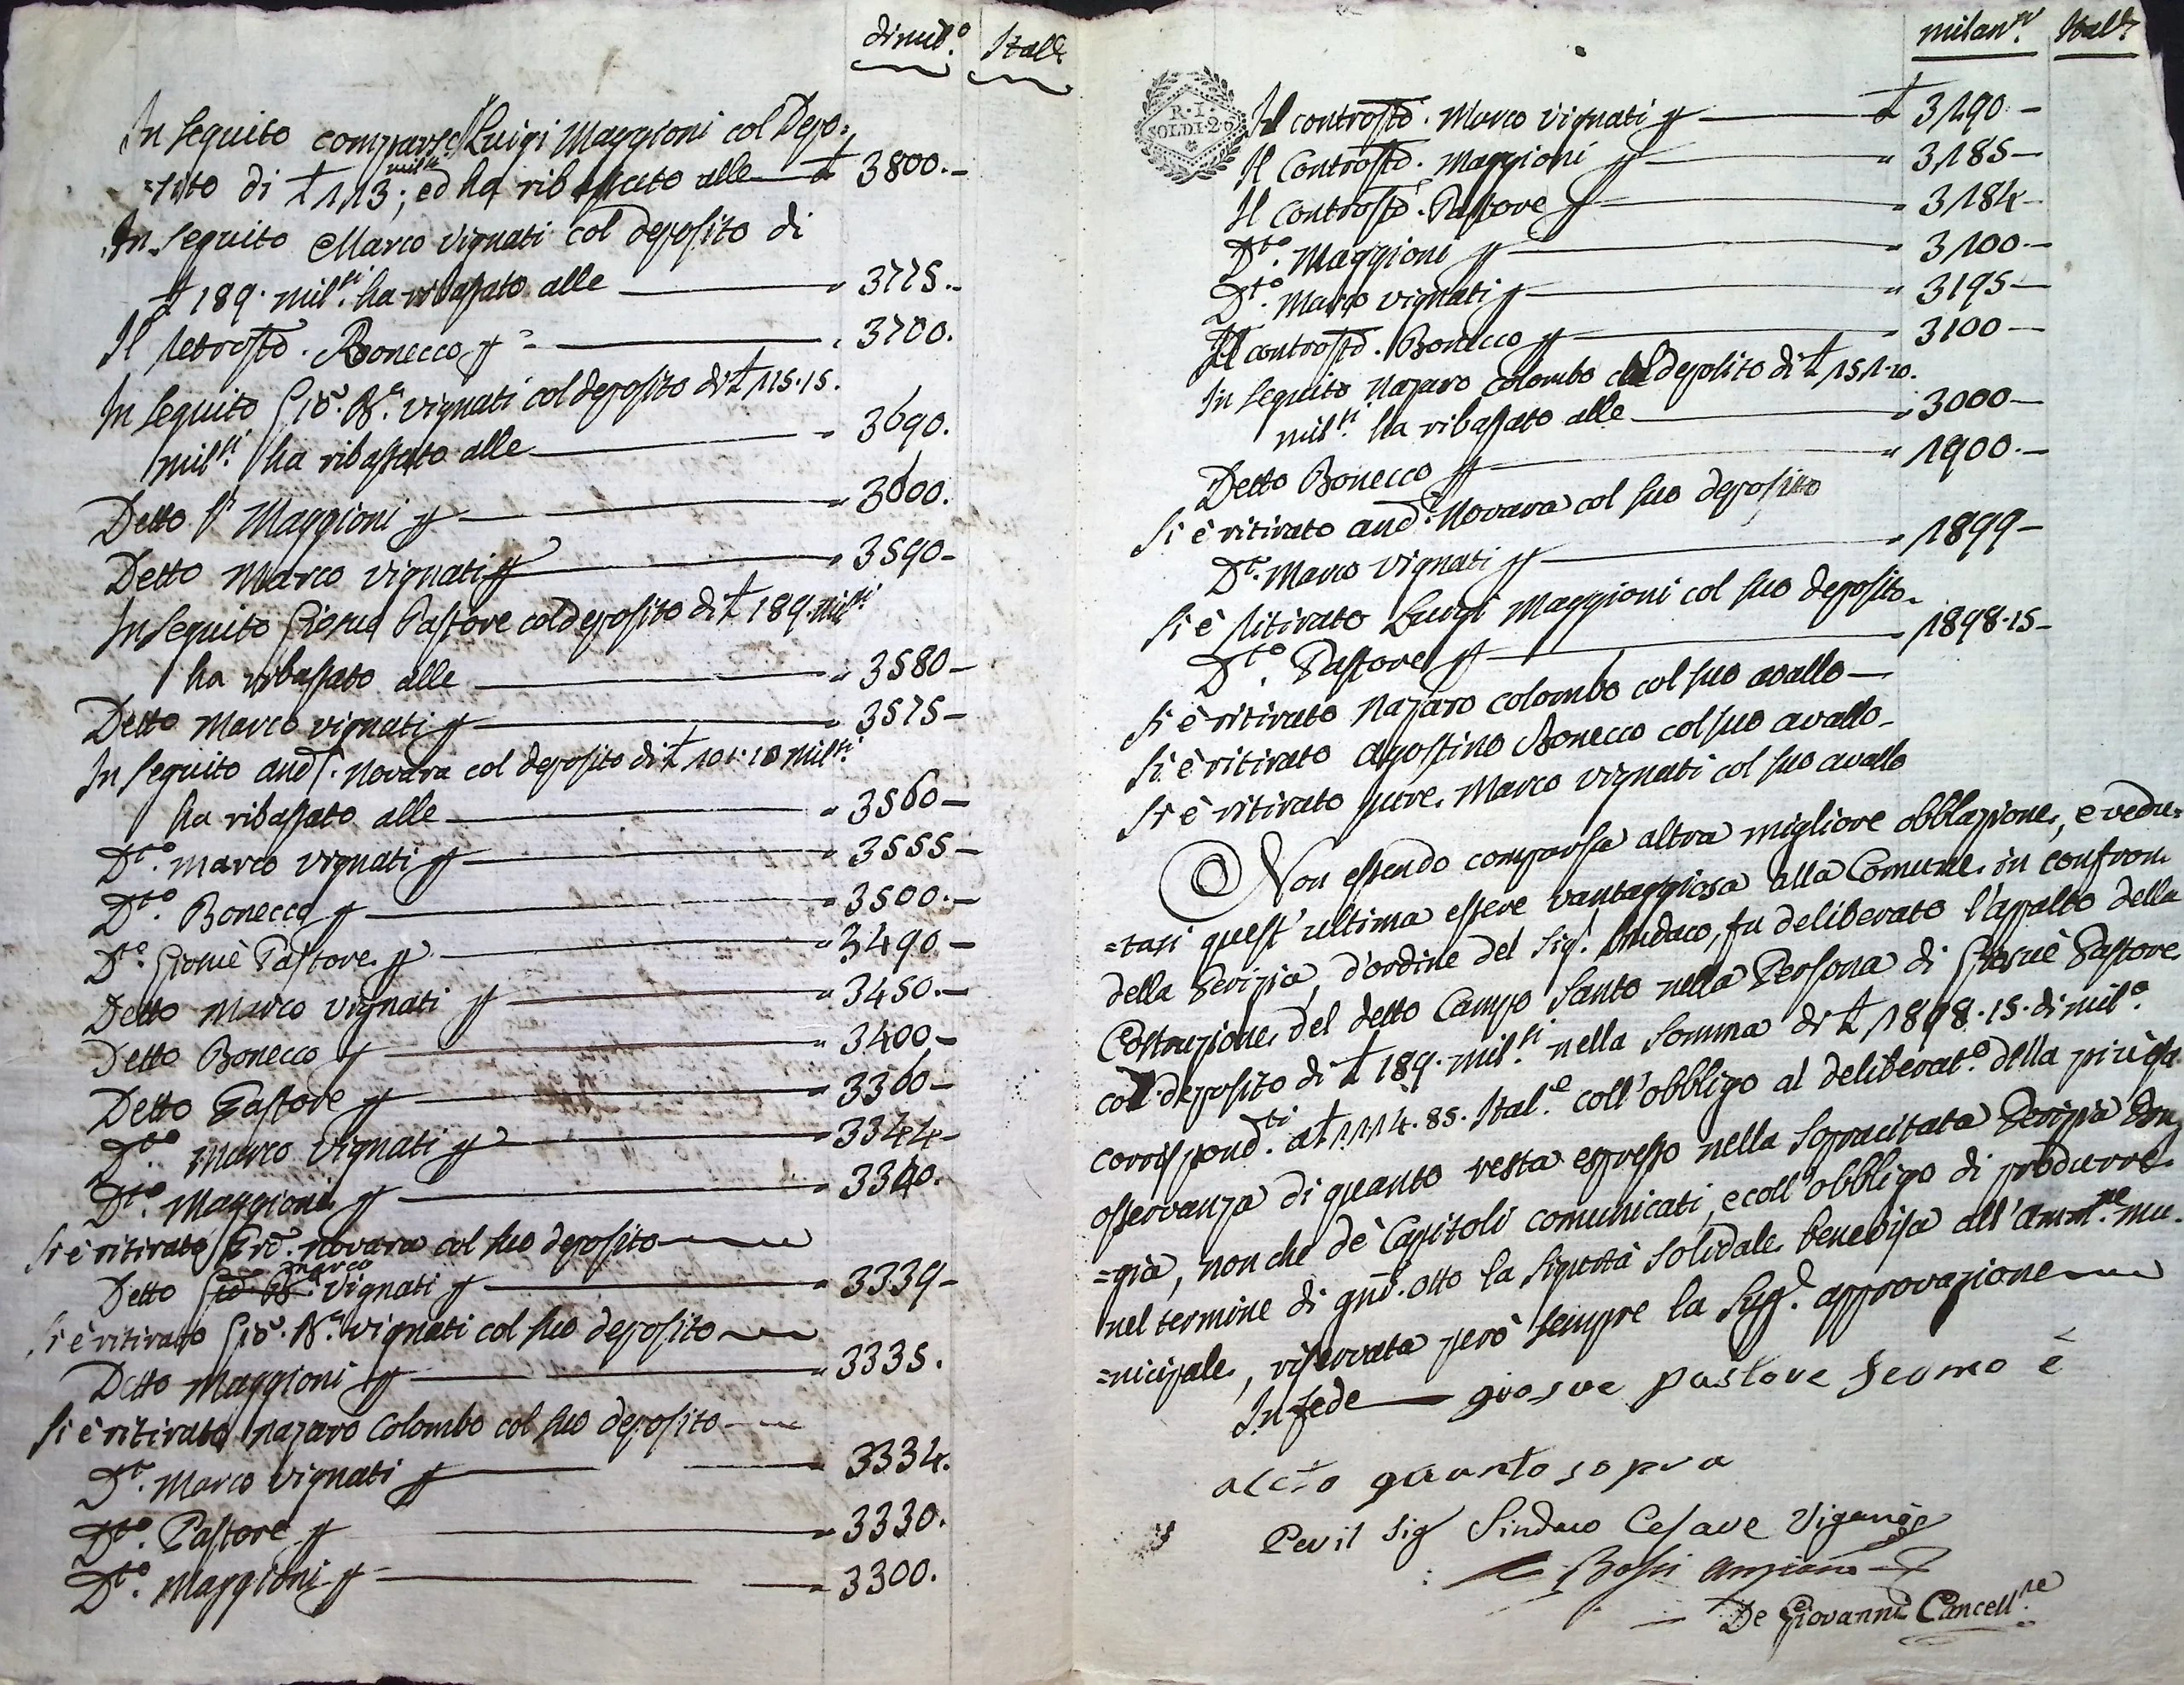 di mil.º Itall.
In seguito comparse Luigi Maggioni col Depo:
=sito di £ 113; mil.ti ed ha ribassato alle — £ 3800.-
In seguito Marco Vignati col deposito di
£ 189. mil.ti ha ribassato alle — " 3775.-
Il retrosto. Bonecco p — " 3700.
In seguito Gio. B.a Vignati col deposito di £ 115.15.
mil.ti ha ribassato alle — " 3690.
Detto S.r Maggioni p — " 3600.
Detto Marco Vignati p — " 3590-
In seguito Giosuè Pastore col deposito di £ 189. mil.ti
ha ribassato alle — " 3580-
Detto Marco Vignati p — " 3575-
In seguito And.a Novara col deposito di £ 101.10 mil.ti
ha ribassato alle — " 3560-
D.to Marco Vignati p — " 3555-
D.to Bonecco p — " 3500.-
D.to Giosuè Pastore p — " 3490-
Detto Marco Vignati p — " 3450.-
Detto Bonecco p — " 3400-
Detto Pastore p — " 3360-
D.to Marco Vignati p — " 3344-
D.to Maggioni p — " 3340.
Si è ritirato Novara col suo deposito —
Detto Gio. B.a Marco Vignati p — " 3339-
Si è ritirato Gio. B.a Vignati col suo deposito —
Detto Maggioni p — " 3335.
Si è ritirato Nazaro Colombo col suo deposito —
D.to Marco Vignati p — " 3334.
D.to Pastore p — " 3330.
D.to Maggioni p — " 3300.
milan.si Ital.
R. I.
SOLDI. 20
Il controsto. Marco Vignati p — £ 3190-
Il Controsto. Maggioni p — " 3185-
Il Controsto. Pastore p — " 3184-
D.to Maggioni p — " 3100.-
D.to Marco Vignati p — " 3195-
Il controsto. Bonecco p — " 3100-
In seguito Nazaro Colombo col deposito di £ 151.10.
mil.ti ha ribassato alle — " 3000-
Detto Bonecco p — " 1900.-
Si è ritirato And.a Novara col suo deposito
D.to Marco Vignati p — " 1899-
Si è ritirato Luigi Maggioni col suo deposito.
D.to Pastore p — " 1898.15-
Si è ritirato Nazaro Colombo col suo avallo —
Si è ritirato Agostino Bonecco col suo avallo-
Si è ritirato pure Marco Vignati col suo avallo
Non essendo comparsa altra migliore obblazione, e vedu:
=tasi quest'ultima essere vantaggiosa alla Comune in confron
della Perizia, d'ordine del Sig.r Sindaco, fu deliberato l'appalto della
Costruzione del detto Campo Santo nella Persona di Giosuè Pastore
col deposito di £ 189. mil.ti nella somma di £ 1898.15. di mil.º
corrispond.ti a £ 1114.85. Ital.e coll'obbligo al deliberat.º della più esa
osservanza di quanto resta espresso nella sopracitata Perizia
=già, non che de' Capitoli comunicati, e coll'obbligo di produrre
nel termine di gni. otto la sigurtà solidale benevisa all'Amm.ne mu:
=nicipale, riservata però sempre la sup.e approvazione —
In fede — giosue pastore fermo è
aceto quanto sopra
Per il Sig Sindaco Cesare Viganò
Bossi Anziano
De Giovanni Cancell.re